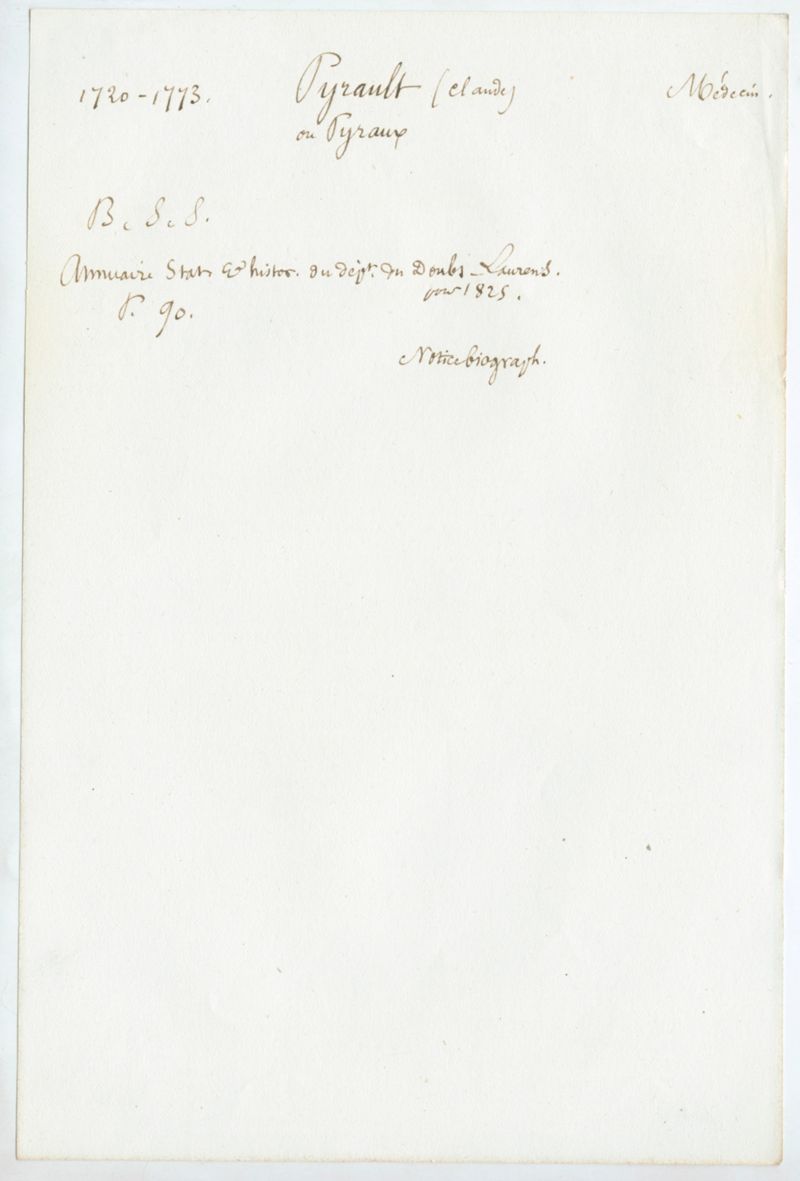 1720-1773. Pyrault (Claude) Médecin.
ou Pyraux
B. S. S.
Annuaire Stat. & histor. du dépt. du Doubs Laurens.
pour 1825.
P. 90.
Notice biograph.